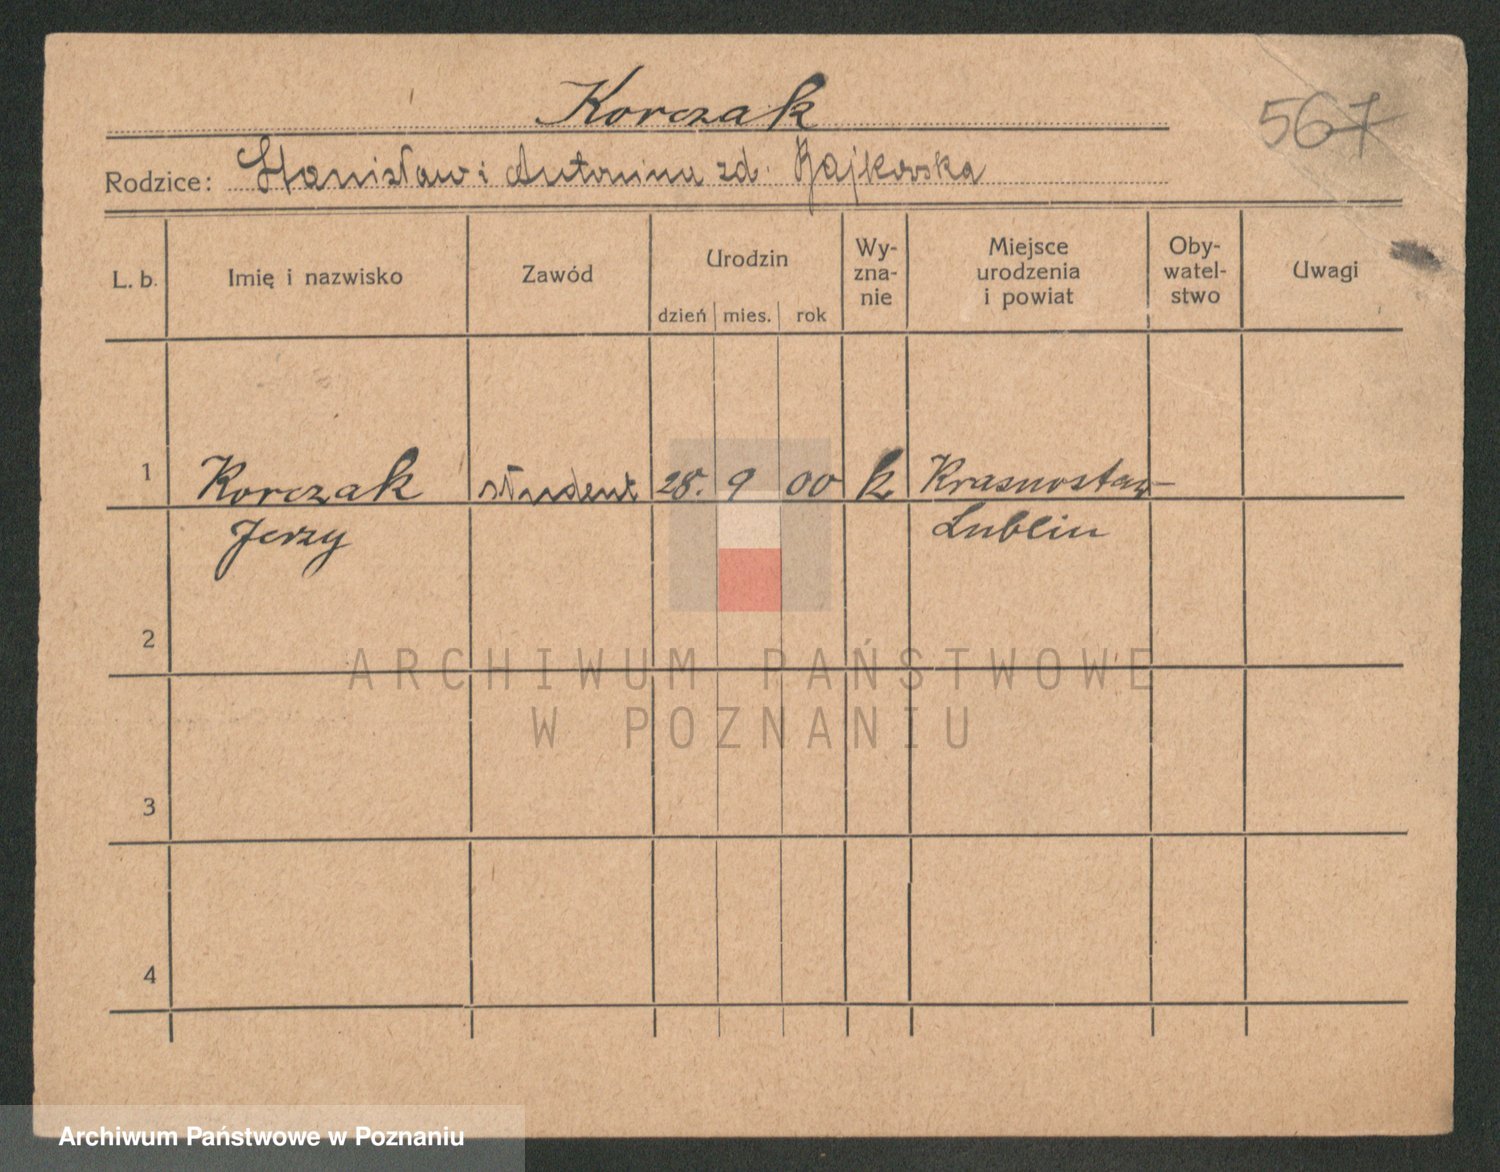 Korczak
567
Rodzice: Stanisław i Antonina zd. Bajkowska
L. b. Imię i nazwisko Zawód Urodzin dzień mies. rok Wy-zna-nie Miejsce urodzenia i powiat Oby-watel-stwo Uwagi
1 Korczak student 28. 9 00 k Krasnostaw-
Jerzy Lublin
2
3
4
ARCHIWUM PAŃSTWOWE
W POZNANIU
Archiwum Państwowe w Poznaniu